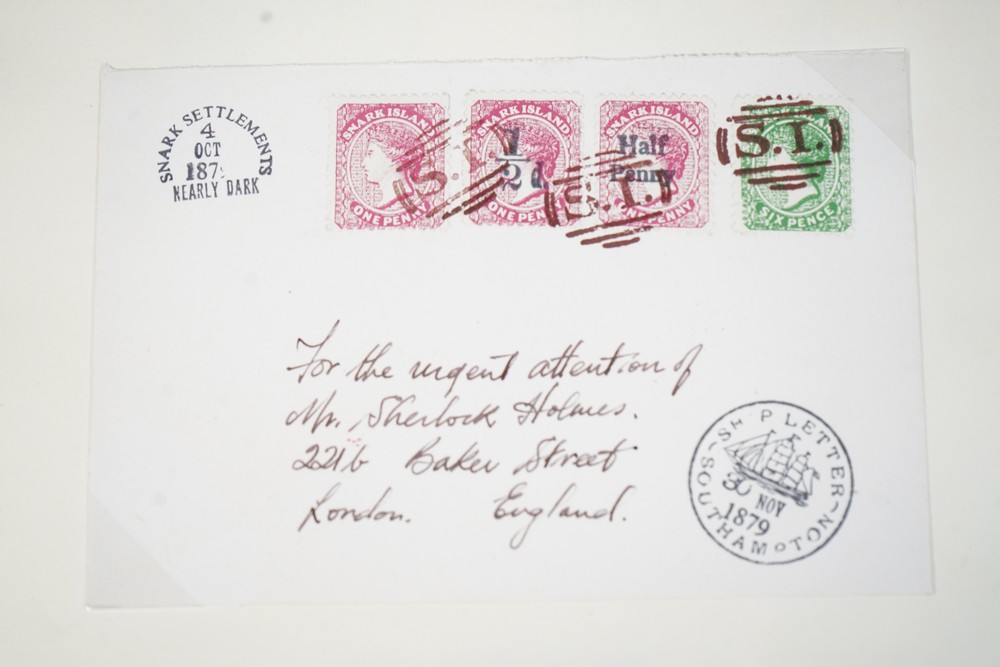 SNARK SETTLEMENTS
4
OCT
187
NEARLY DARK
SNARK ISLAND
ONE PENNY
S.I.
SNARK ISLAND
1/2 d
ONE PENNY
SNARK ISLAND
Half
Penny
PENNY
S.I.
S.I.
SIX PENCE
For the urgent attention of
Mr. Sherlock Holmes.
221b Baker Street
London. England.
SHIP LETTER
30 NOV
1879
SOUTHAMPTON